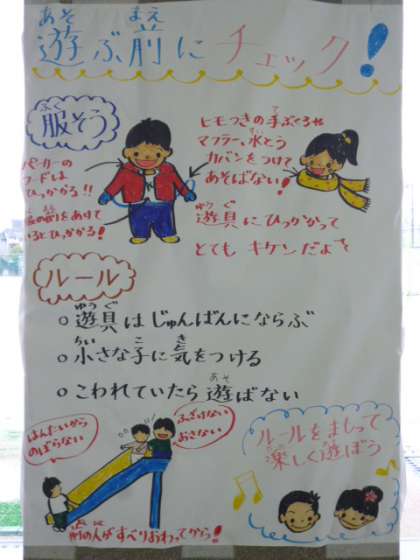 遊ぶ前にチェック!
服そう
パーカーの
フードは
ひっかかる!!
前のチャックをあけて
いるとひっかかる!
ヒモつきの手ぶくろや
マフラー、水とう
カバンをつけて
あそばない!
遊具にひっかかって
とてもキケンだよ
ルール
○遊具はじゅんばんにならぶ
○小さな子に気をつける
○こわれていたら遊ばない
はんたいから
のぼらない
ふざけない
おさない
前の人がすべりおわってから!
ルールをまもって
楽しく遊ぼう